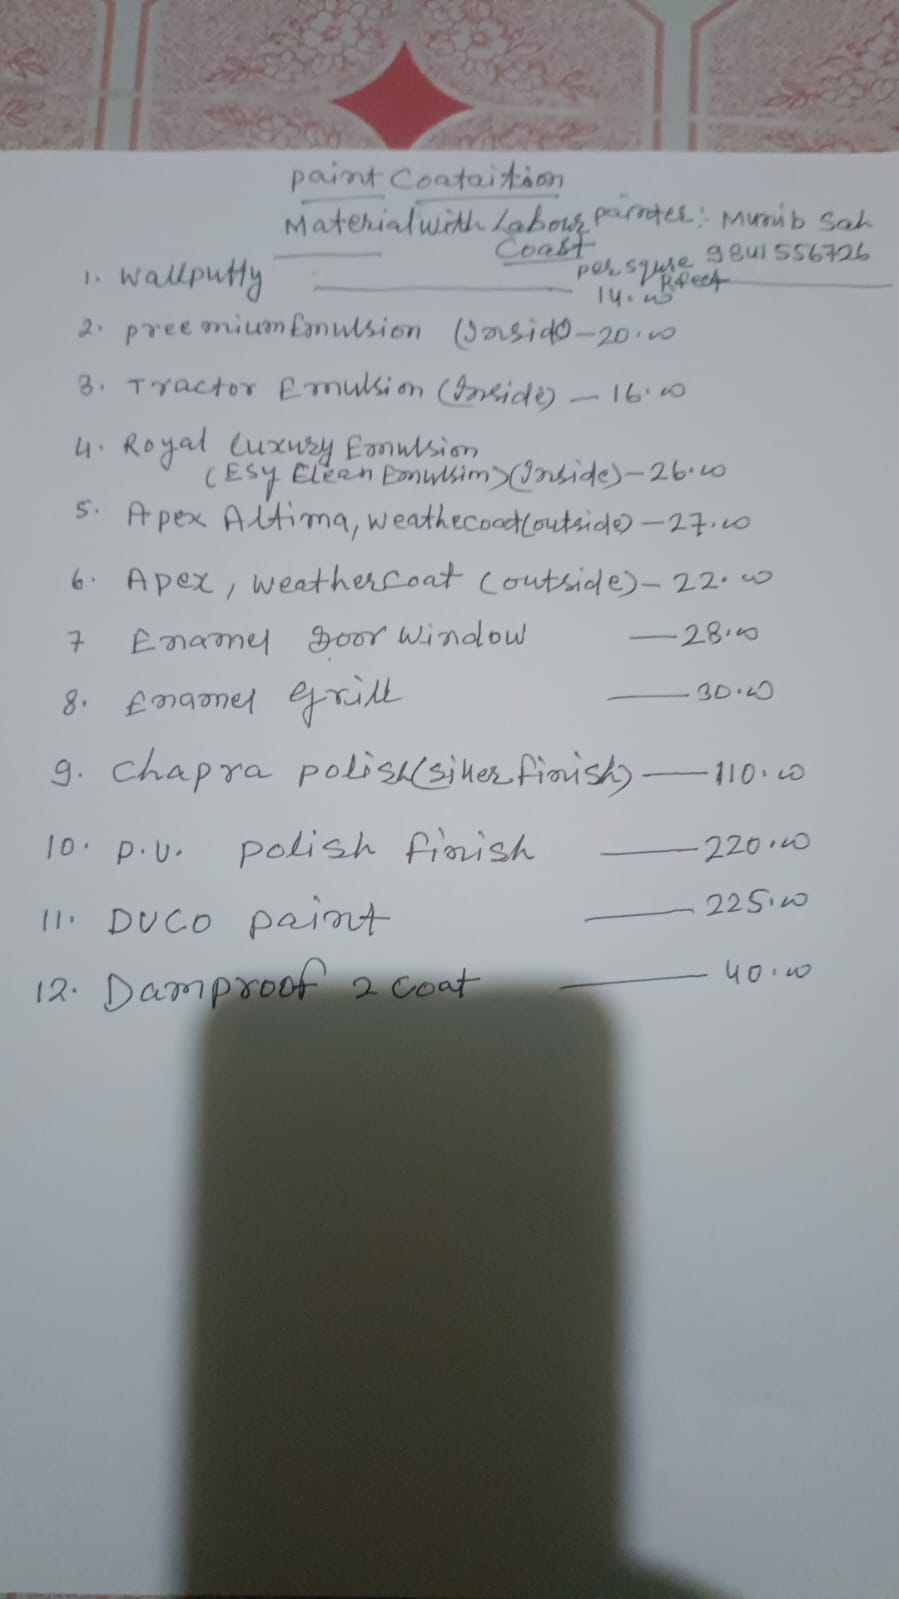 paint Coataition
Material with Labour Coast
painter: Munib Sah
9841556726
per squre Rfeet
1. Wallputty 14.00
2. preemium Emulsion (Inside) - 20.00
3. Tractor Emulsion (Inside) - 16.00
4. Royal Luxury Emulsion
(Esy Elean Emulsion) (Inside) - 26.00
5. Apex Altima, weathecoat (outside) - 27.00
6. Apex, weathercoat (outside) - 22.00
7 Enamel Door Window - 28.00
8. Enamel Grill - 30.00
9. Chapra polish (silker finish) - 110.00
10. P.U. polish finish - 220.00
11. DUCO paint - 225.00
12. Damproof 2 coat - 40.00